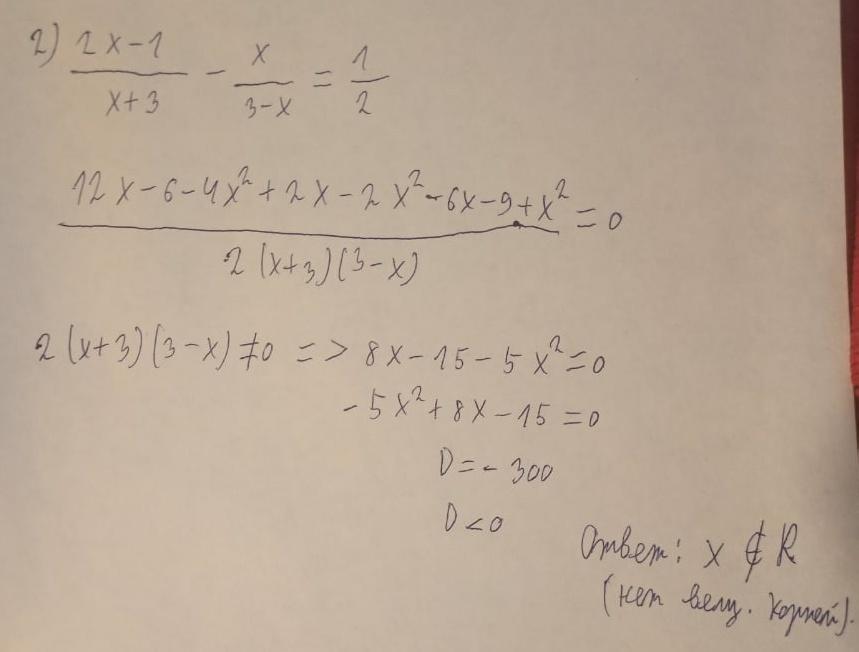 2) (2x-1)/(x+3) - x/(3-x) = 1/2
(12x-6-4x²+2x-2x²-6x-9+x²)/(2(x+3)(3-x)) = 0
2(x+3)(3-x)≠0 => 8x-15-5x²=0
-5x²+8x-15=0
D=-300
D<0
Ответ: x ∉ R
(нет вещ. корней).